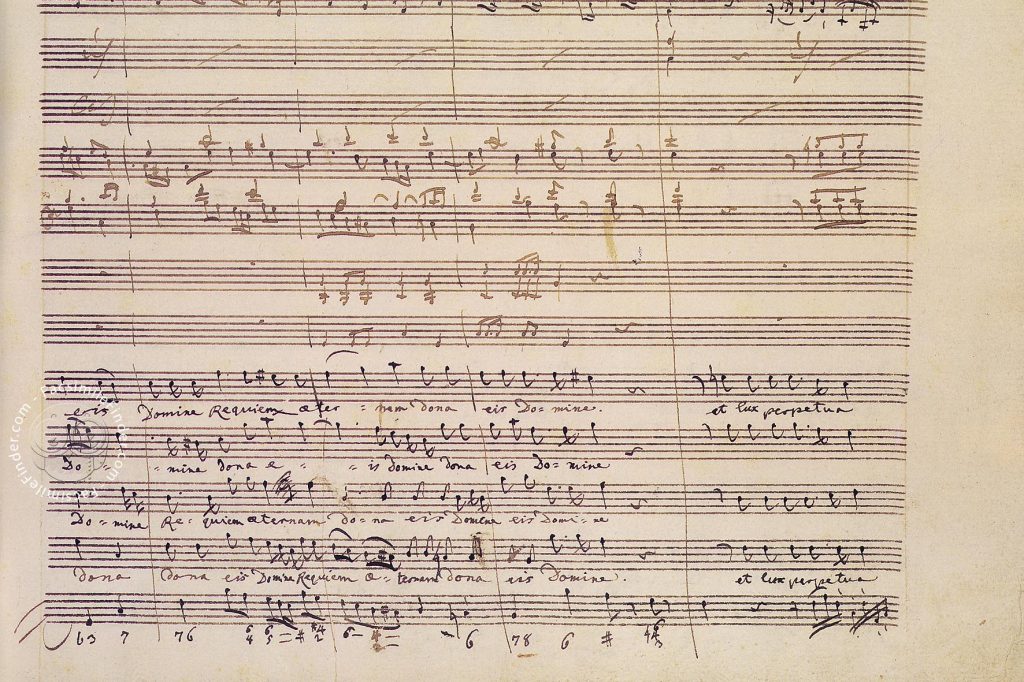 eris Domine Requiem æter - nam dona eis Do = mine. et lux perpetua
Do = = mine dona e - - is Domine dona eis Do = mine
Do = mine Re = quiem æternam do = na eis Domine eis Domi = ne
dona dona eis Domine Requiem æ = ternam dona eis Domine. et lux perpetua
63 7 76 6 78 6 #
facsimilefinder.com